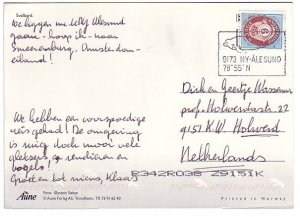 Svalbard
We liggen nu met Ny Alesund
gaan - hoop ik - naar
Smeerenburg, Amsterdam-
eiland!
We hebben een voorspoedige
reis gehad! De omgeving
is ruig doch mooi vele
gletsjers, rendieren en
vogels!
Groeten tot niens, Klaas
9173 NY-ÅLESUND
78°55'N
Dirk en Geertje Wassenaar
prof. Holwerdastr. 22
9151 K.W. Holwerd
Netherlands
R342R038 29151K
Aune
Foto: Øystein Søbye
© Aune Forlag AS, Trondheim, Tlf. 73 91 63 40
Printed in Norway